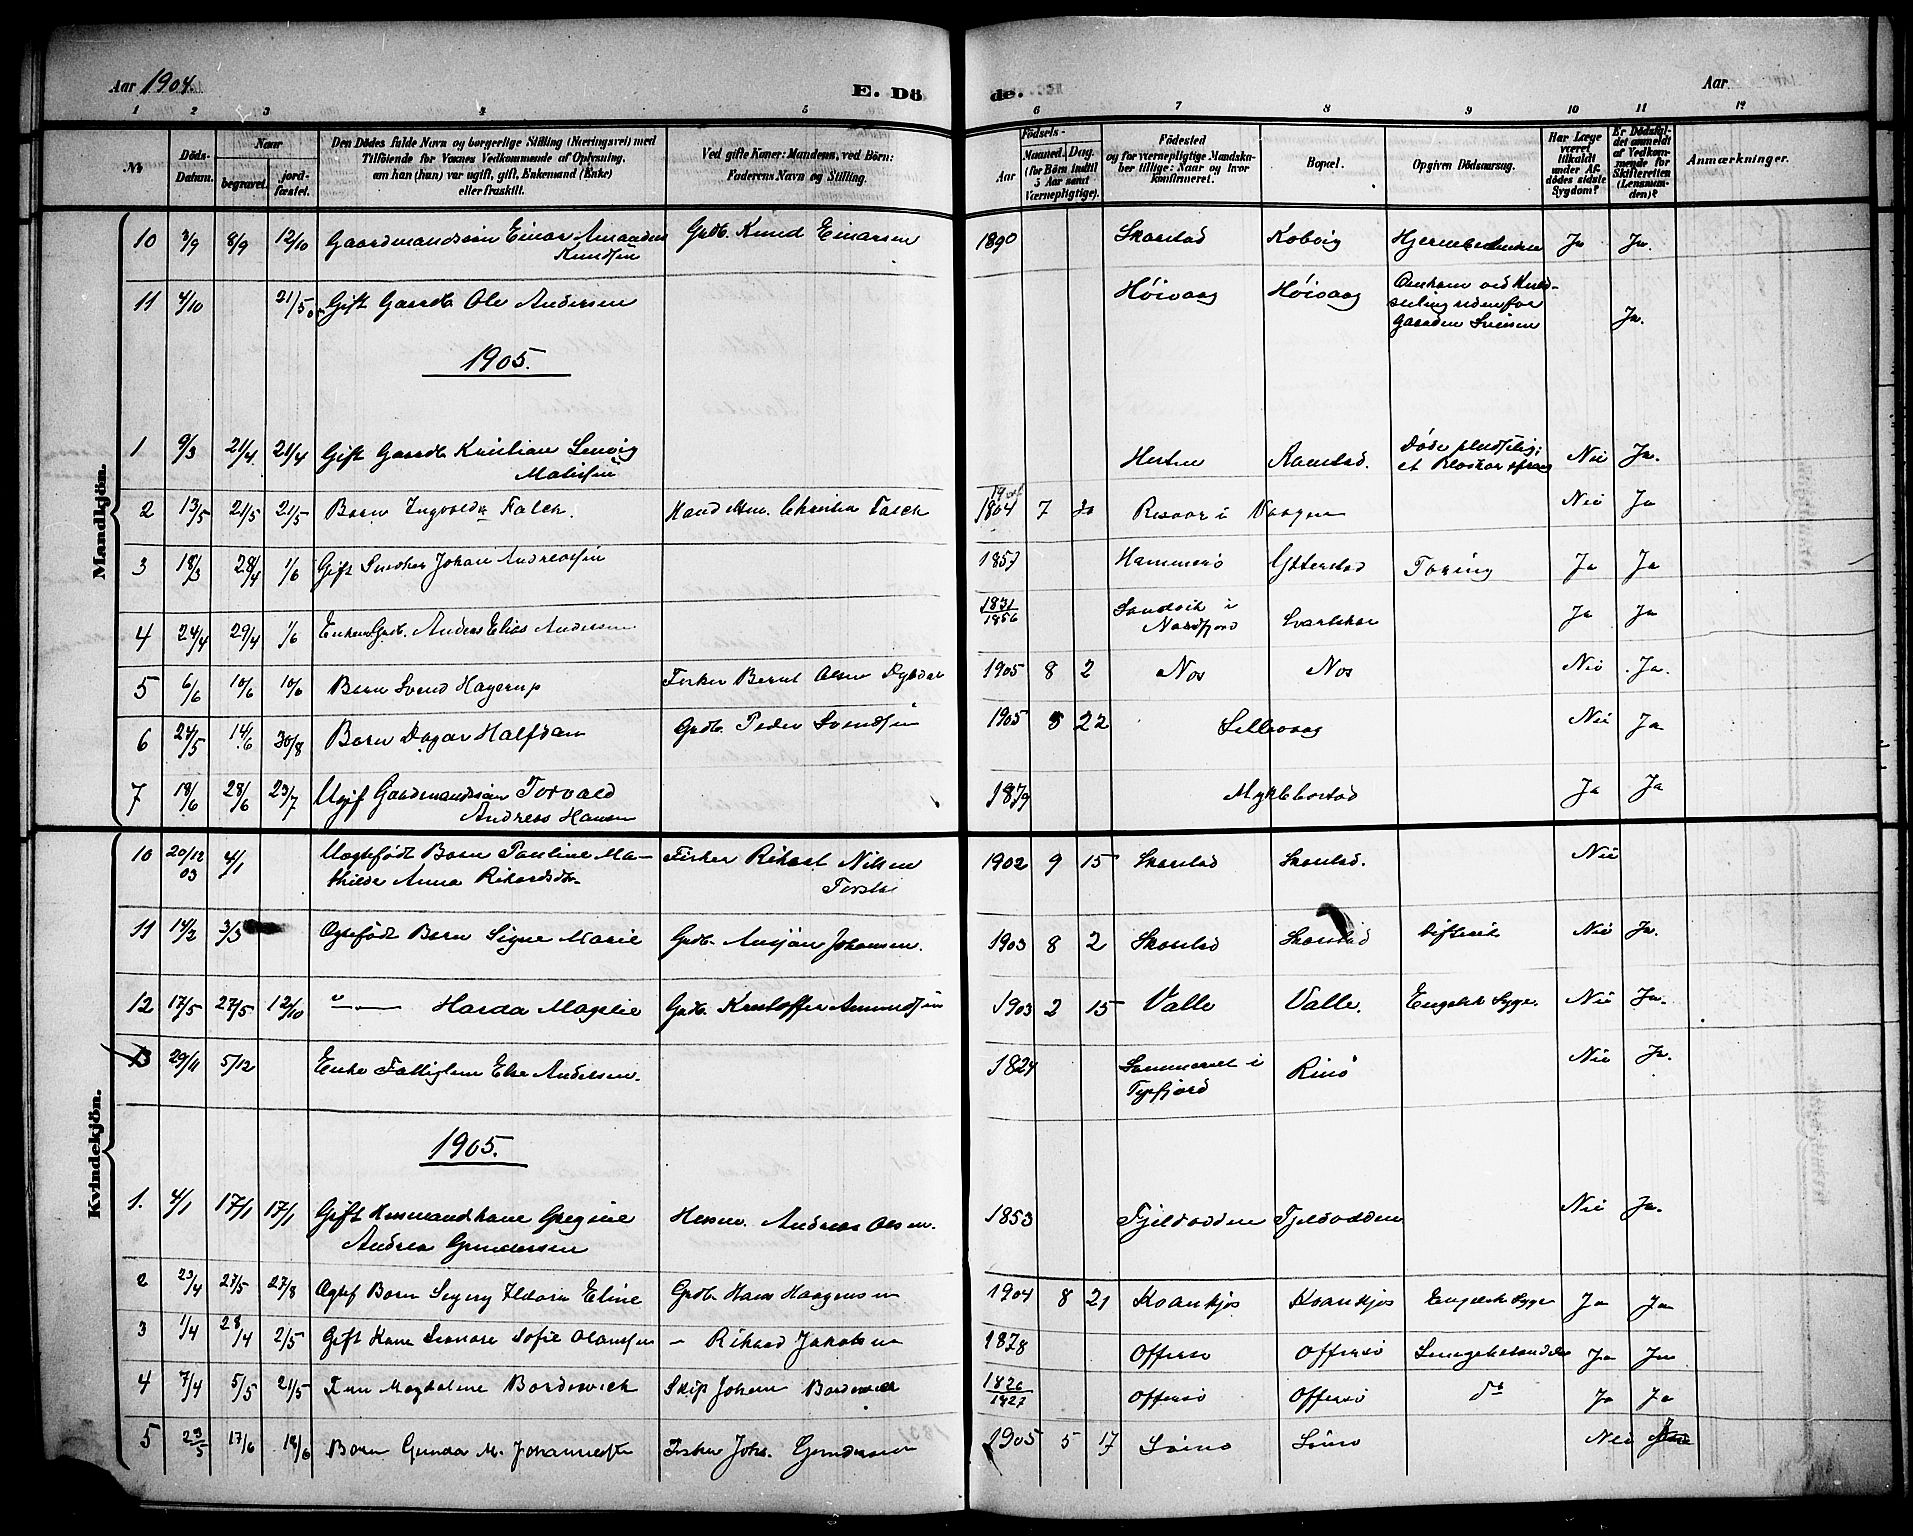 Aar 1904. E. Dö de. Aar
1 2 3 4 5 6 7 8 9 10 11 12
№
Döds-Datum.
Naar
begravet.
jord-fæstet.
Den Dödes fulde Navn og borgerlige Stilling (Næringsvei) med
Tilföiende for Voxnes Vedkommende af Oplysning,
om han (hun) var ugift, gift, Enkemand (Enke)
eller fraskilt.
Ved gifte Koner: Mandens, ved Börn:
Faderens Navn og Stilling.
Födsels-
Aar
Maaned. Dag.
(for Börn indtil
5 Aar samt
Værnepligtige).
Födested
og for værnepligtige Mandska-
ber tillige: Naar og hvor
konfirmeret.
Bopæl.
Opgiven Dödsaarsag.
Har Læge
været
tilkaldt
under Af-
dödes sidste
Sygdom?
Er Dödsfal-
det anmeldt
af Vedkom-
mende for
Skifteretten
(Lensman-
den)?
Anmærkninger.
Mandkjön.
10 3/9 8/9 12/10 Gaardmandssön Einar Knudsen Grdb. Knud Einarsen 1890 Skarstad Kobvig Ja Ja.
11 4/10 21/5 05 Gift Gaardb. Ole Andersen Høivaag Høivaag Omkom ved
udenfor
Gaarden Ja.
1905.
1 9/3 21/4. 21/4 Gift Gaardb. Kristian Senvig Ramstad. Døde pludselig; Nei Ja.
2 13/5 21/5 21/5 Barn Ingvald Falch. Christian Falch 1904 7 Risvær i Vaagen Nei Ja
3 18/3 28/4 1/6 Gift Snedker Johan Andreassen 1857 Hammerö Ytterstad Tæring Ja Ja
4 24/4 29/4 1/6 Enkem Grdb. Anders Elias Andersen 1831/1856 Sandvik i
Nordfjord Svartskar Ja Ja
5 6/6 10/6 10/6 Barn Svend Hagerup Fisker Bernt Olsen 1905 8 2 Nos Nos Nei Ja.
6 24/5 14/6 30/8 Barn Dagar Halfdan Grdb. Peder Svendsen 1905 5 22 Sellevaag Nei Ja
7 18/6 28/6 23/7 Ugif Gaardmandssön Torvald
Andreas Hansen 1879 Myklebostad Ja Ja
Kvindekjön.
10 20/12 03 4/1 Uægtefödt Barn Pauline Ma-
thilde Anna Rikardsdt. Fisker Rikart Nilsen 1902 9 15 Skarstad Skarstad. Nei
11 14/2 3/5 Ægtefödt Barn Signe Marie Grdb. Ansjön Johansen. 1903 8 2 Skarstad Skarstad Difterit Nei Ja.
12 17/5 27/5 12/10 " — Harda Magelie Grdb. Kristoffer Amundsen 1903 2 15 Valle Valle. Engelsk Syge. Nei Ja.
13 29/11 5/12 Enke Fattiglem Else Andersen. 1824 i
Tysfjord Rinö Nei Ja.
1905.
1. 4/1 17/1 17/1 Gift Husmandskone Gregine
Andrea Gundersen Husm. Andreas Olsen. 1853 Fjeldvodden Fjeldvodden Nei Ja.
2 23/4 27/5 27/8 Ægtef Barn Signy Ildora Eline Grdb. Hans Haagensen 1904 8 21 Kvankjos Kvankjos Engelsk Syge Ja Ja
3 1/4 28/4 2/5 Gift Kone Leonore Sofie Olaussen — Rikard Jakobsen 1878 Offersö Offersö Lungebetændelse Ja Ja
4 7/4 5/5 21/5 Magdalene Bordevich Skip Johan Bordevich 1826/1827 Offersö Offersö do Ja Ja
5 23/5 17/6 18/6 Barn Gunda M. Johannesdtr Fisker Johs. Gundersen 1905 5 17 Nei